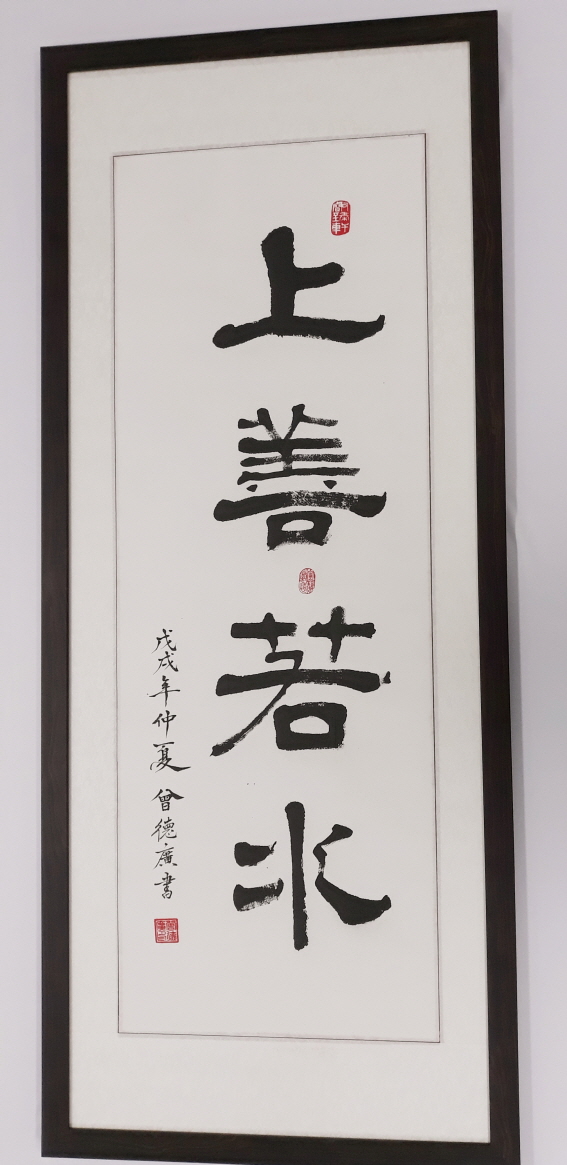 上善若水
戊戌年仲夏 曾德廣書